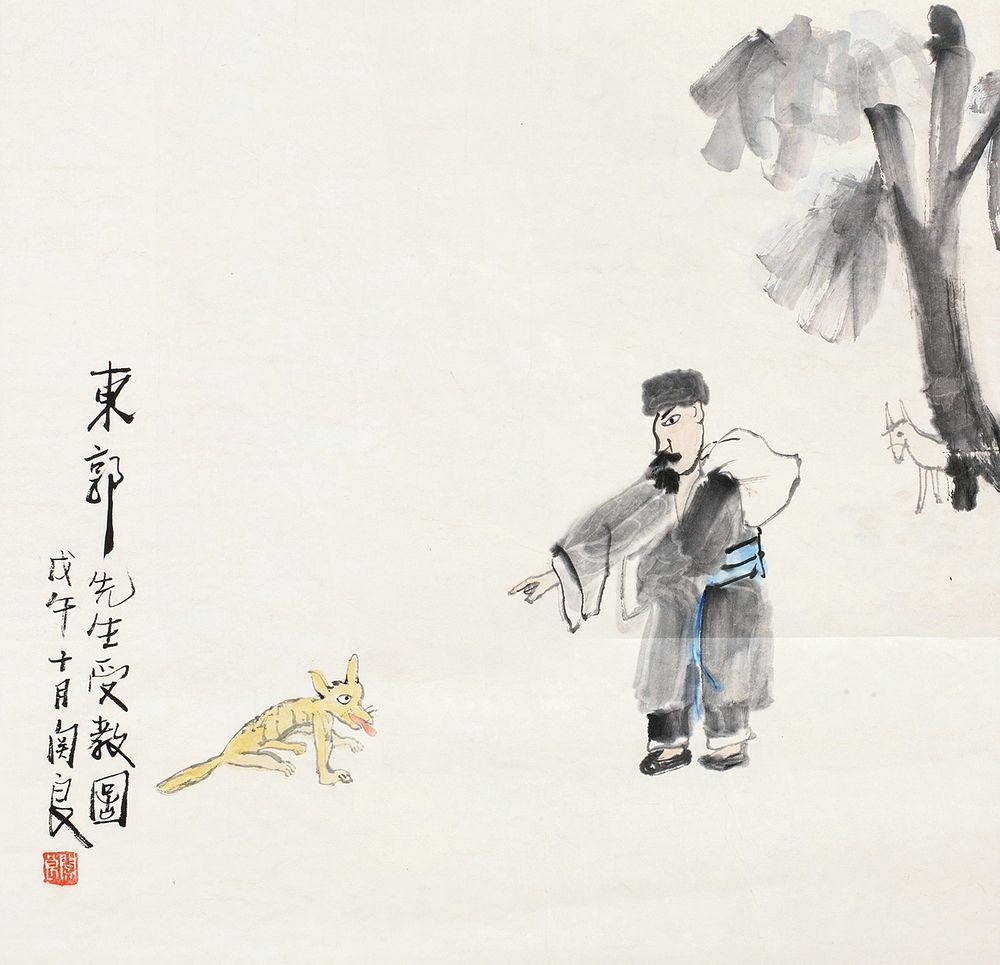 東郭先生受教圖
戊午十月関良
關良